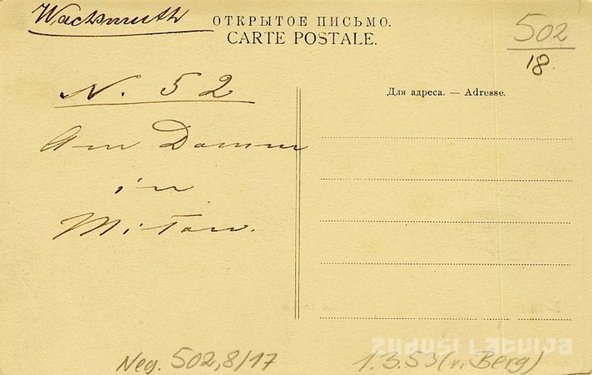 Wachsmuth
ОТКРЫТОЕ ПИСЬМО.
CARTE POSTALE.
502
18.
N. 52
Am Damm
in
Mitau.
Для адреса. — Adresse.
Neg. 502,8/17
1.3.53 (v. Berg)
ZUDUSI LATVIJA